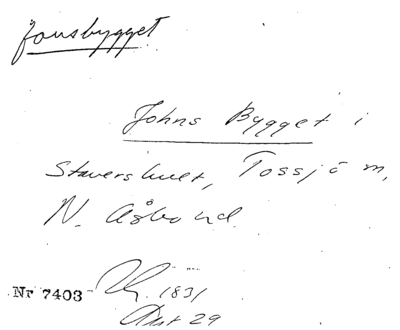 Jonsbygget
Johns Bygget i
Stavershult, Tossjö m,
N. Åsbo hd.
Nr 7403 1831
Akt 29